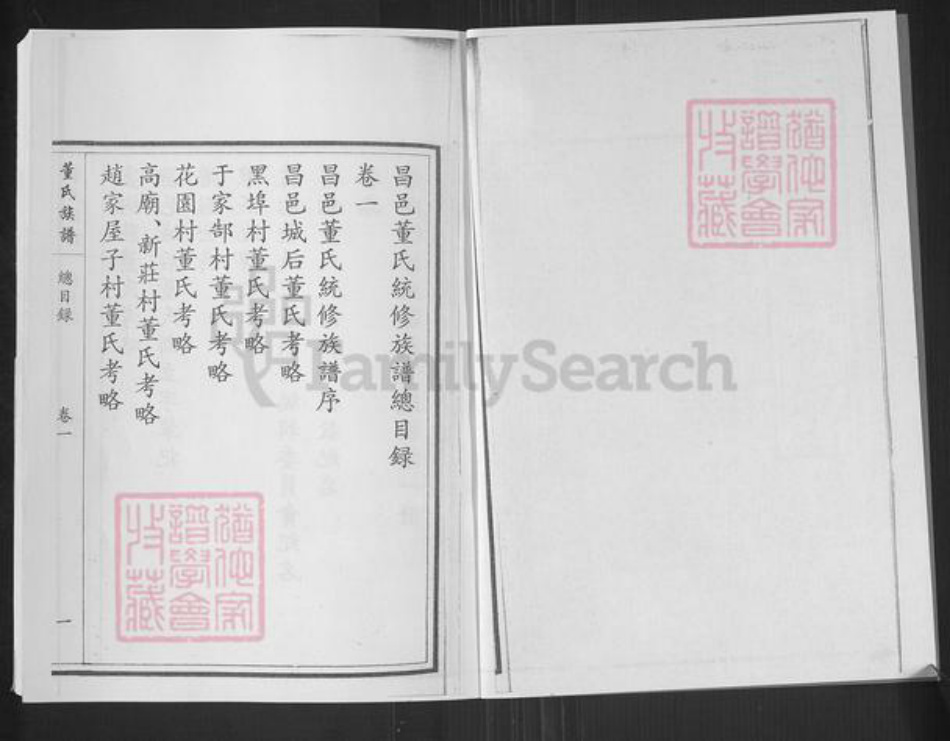 昌邑董氏統修族譜總目録
卷一
昌邑董氏統修族譜序
昌邑城后董氏考略
黑埠村董氏考略
于家郜村董氏考略
花園村董氏考略
高廟、新莊村董氏考略
趙家屋子村董氏考略
董氏族譜
總目録
卷一
一
FamilySearch